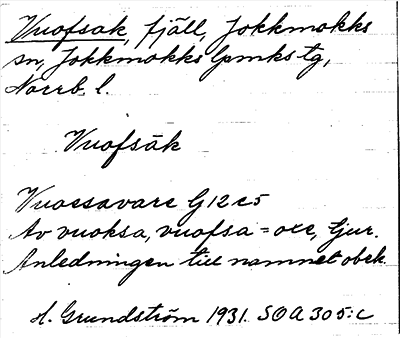 Vuofsak, fjäll, Jokkmokks
sn, Jokkmokks lpmks tg,
Norrb. l.
Vuofsāk
Vuossavare G12 c5
Av vuoksa, vuofsa = oxe, tjur.
Anledningen till namnet obek.
H. Grundström 1931. SOA 305:c